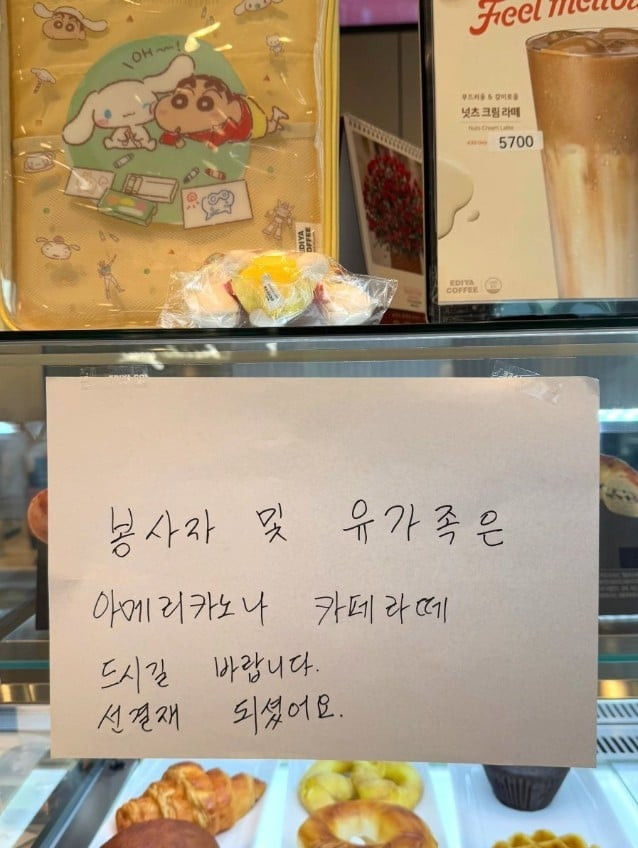 아~!
Feel
부드러움 & 감미로움
넛츠 크림 라떼
Nuts Cream Latte
5700
EDIYA COFFEE
EDIYA
COFFEE
봉사자 및 유가족은
아메리카노나 카페라떼
드시길 바랍니다.
선결재 되셨어요.